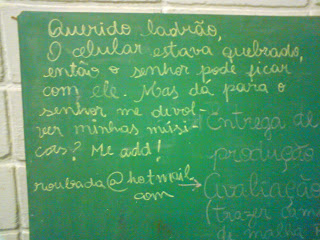 Querido ladrão,
O celular estava quebrado,
então o senhor pode ficar
com ele. Mas dá para o
senhor me devol-
ver minhas músi-
cas? Me add!
roubada@hotmail
com
Entrega de
produção
→ Avaliação
(trazer
de malha